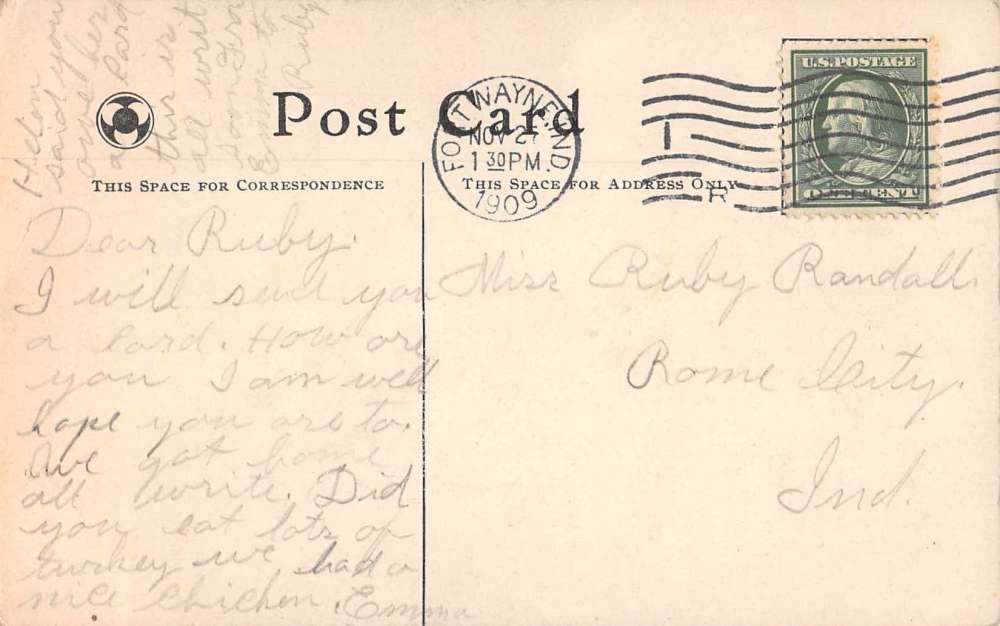 Helen
said you
owe her
a card
this is
all write
Emma to
Ruby
Post Card
THIS SPACE FOR CORRESPONDENCE
THIS SPACE FOR ADDRESS ONLY
FORT WAYNE, IND.
NOV 27
1 30 PM.
1909
1
R
U.S. POSTAGE
ONE CENT
Dear Ruby.
I will send you
a card. How are
you I am well
hope you are to.
we got home
all write. Did
you eat lots of
turkey we had a
nice chicken. Emma
Miss Ruby Randall
Rome City.
Ind.